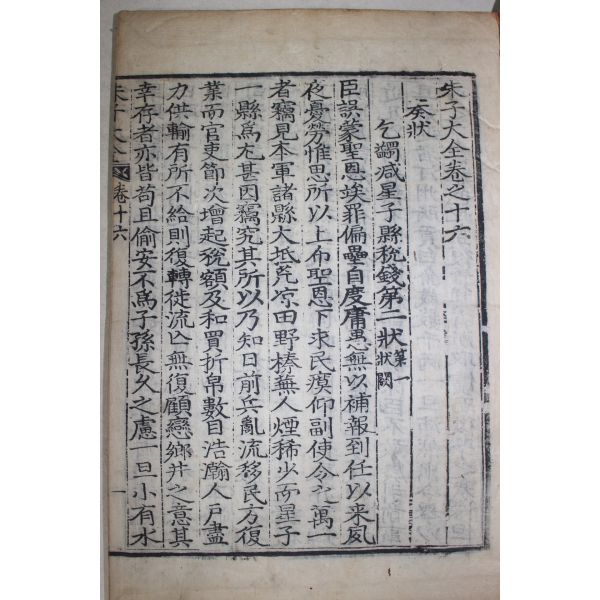 朱子大全卷之十六
奏狀
乞蠲减星子縣稅錢第二狀 第一狀闕
臣誤蒙聖恩竢罪偏壘自度庸愚無以補報到任以来夙
夜憂勞惟思所以上布聖恩下求民瘼仰副使令之萬一
者竊見本軍諸縣大抵荒凉田野榛蕪人煙稀少而星子
一縣爲尤甚因竊究其所以乃知日前兵亂流移民方復
業而官吏節次增起稅額及和買折帛數目浩瀚人戶盡
力供輸有所不給則復轉徙流亾無復顧戀鄉井之意其
幸存者亦皆苟且偷安不爲子孫長久之慮一旦小有水
朱子大全 卷十六 一